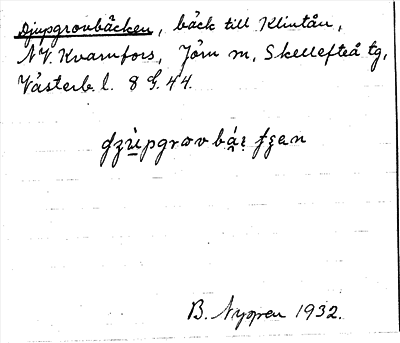 Djupgrovbäcken, bäck till Klintån,
N.V. Kvarnfors, Jörn m, Skellefteå tg,
Västerb. l. 8 G. 44.
B. Nygren 1932.